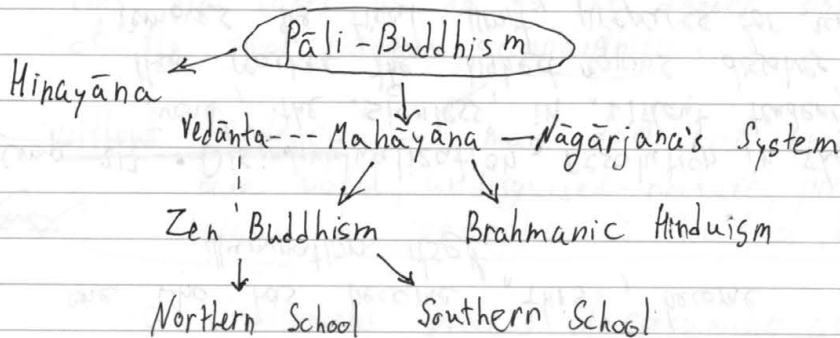 Pāli-Buddhism
Hinayāna
Vedānta --- Mahāyāna — Nāgārjana's System
Zen Buddhism Brahmanic Hinduism
Northern School Southern School